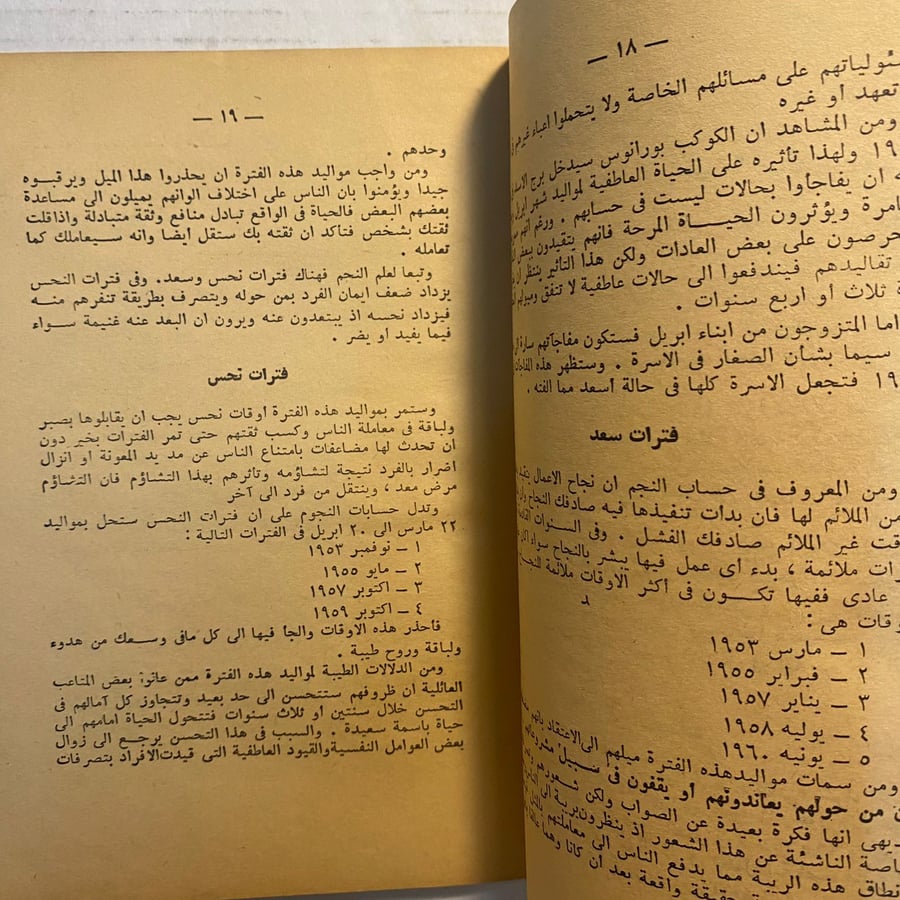 — ١٨ —
مسئولياتهم على مسائلهم الخاصة ولا يتحملوا أعباء غيرهم
تعهد او غيره
ومن المشاهد ان الكوكب يورانوس سيدخل برج الاسد
ولهذا تأثيره على الحياة العاطفية لمواليد شهر ابريل
ان يفاجأوا بحالات ليست فى حسابهم . ورغم أنهم
ويؤثرون الحيــاة المرحة فانهم يتقيدون ببعض
يحرصون على بعض العادات ولكن هذا التأثير ينتظر ان
تقاليدهم فيندفعوا الى حالات عاطفية لا تتفق وميولهم
ثلاث أو اربع سنوات .
اما المتزوجون من ابناء ابريل فستكون مفاجآتهم سارة
سيما بشأن الصغار فى الاسرة . وستظهر هذه المفاجآت
فتجعل الاسرة كلها فى حالة أسعد مما الفته .
فترات سعد
ومن المعروف فى حساب النجم ان نجاح الاعمال
من الملائم لها فان بدأت تنفيذها فيه صادفك النجاح
غير الملائم صادفك الفشل . وفى السنوات
ملائمة ، بدء أى عمل فيها يبشر بالنجاح سواء
عادى ففيها تكــون فى أكثر الاوقات ملائمة
هى :
١ — مارس ١٩٥٣
٢ — فبراير ١٩٥٥
٣ — يناير ١٩٥٧
٤ — يوليه ١٩٥٨
٥ — يونيه ١٩٦٠
ومن سمات مواليد هذه الفترة ميلهم الى الاعتقاد بانهم
من حولهم يعاندونهم أو يقفون فى سبيل
انها فكرة بعيدة عن الصواب ولكن شعورهم
الناشئة عن هذا الشعور اذ ينظرون بريبة الى
هذه الريبة مما يدفع الناس الى معاملتهم
حقيقة واقعة بعد ان كانا
— ١٩ —
وحدهم .
ومن واجب مواليد هذه الفترة ان يحذروا هذا الميل ويرقبــوه
جيدا ويؤمنوا بان الناس على اختلاف الوانهم يميلون الى مساعدة
بعضهم البعض فالحياة فى الواقع تبادل منافع وثقة متبادلة واذاقلت
ثقتك بشخص فتأكد ان ثقته بك ستقل ايضا وانه سيعاملك كما
تعامله .
وتبعا لعلم النجم فهناك فترات نحس وسعد. وفى فترات النحس
يزداد ضعف ايمان الفرد بمن حوله ويتصرف بطريقة تنفرهم منــه
فيزداد نحسه اذ يبتعدون عنه ويرون ان البعد عنه غنيمة ســواء
فيما يفيد أو يضر .
فترات نحس
وستمر بمواليد هذه الفترة أوقات نحس يجب ان يقابلوها بصبر
ولباقة فى معاملة الناس وكسب ثقتهم حتى تمر الفترات بخير دون
ان تحدث لها مضاعفات بامتناع الناس عن مد يد المعونة أو انزال
اضرار بالفرد نتيجة لتشاؤمه وتأثرهم بهذا التشاؤم فان التشاؤم
مرض معد ، وينتقل من فرد الى آخر
وتدل حسابات النجوم على ان فترات النحس ستحل بمواليد
٢٢ مارس الى ٢٠ ابريل فى الفترات التالية :
١ — نوفمبر ١٩٥٣
٢ — مايو ١٩٥٥
٣ — اكتوبر ١٩٥٧
٤ — اكتوبر ١٩٥٩
فأحذر هذه الاوقات والجأ فيها الى كل مافى وســعك من هدوء
ولباقة وروح طيبة .
ومن الدلالات الطيبة لمواليد هذه الفترة ممن عانوا بعض المتاعب
العائلية ان ظروفهم ستتحسن الى حد بعيد وتتجاوز كل آمالهم فى
التحسن خلال سنتين أو ثلاث سنوات فتتحول الحياة امامهم الى
حياة باسمة سعيدة . والسبب فى هذا التحسن يرجع الى زوال
بعض العوامل النفسية والقيود العاطفية التى قيدت الافراد بتصرفات